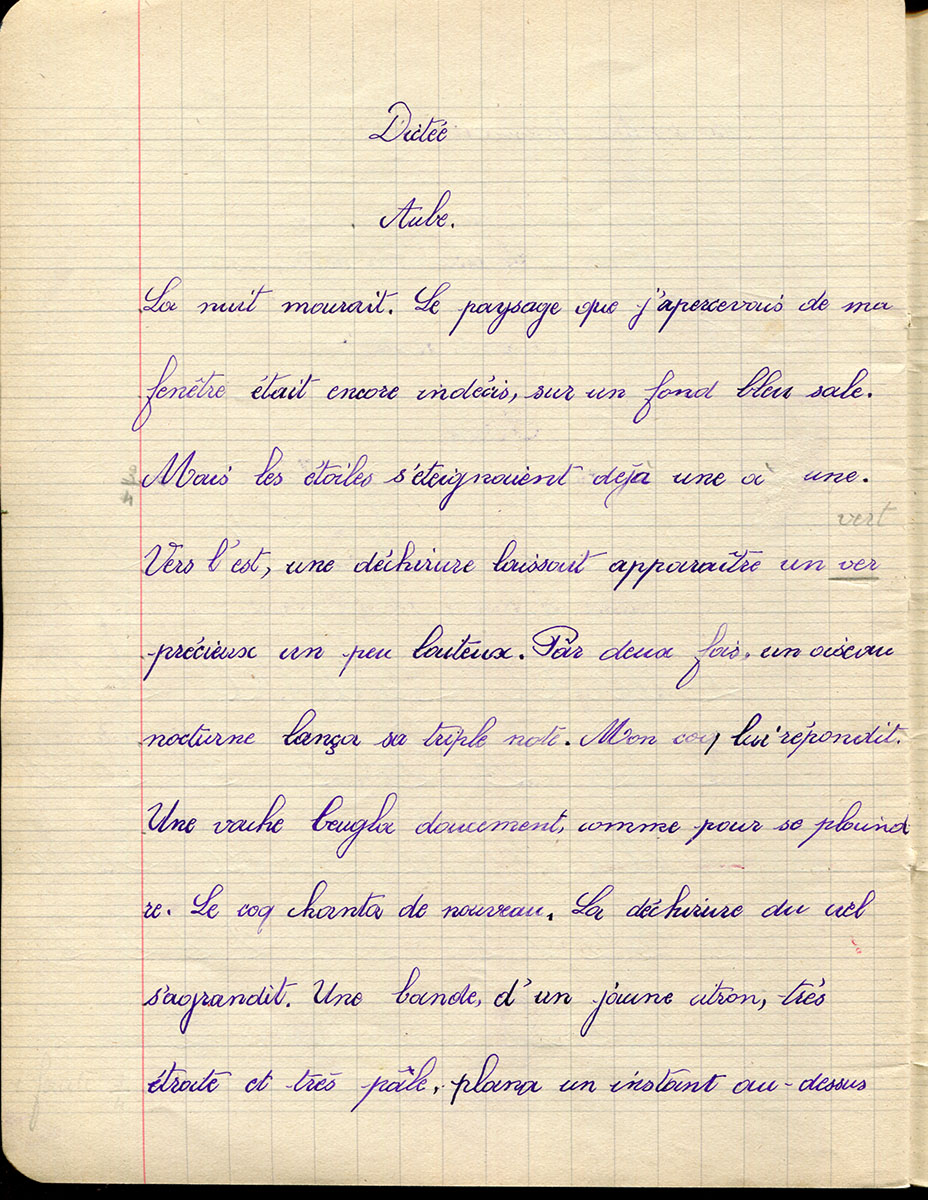 Dictée
Aube.
La nuit mourait. Le paysage que j'apercevais de ma
fenêtre était encore indécis, sur un fond bleu sale.
Mais les étoiles s'éteignaient déjà une à une.
vert
Vers l'est, une déchirure laissait apparaître un ver
précieux un peu laiteux. Par deux fois, un oiseau
nocturne lança sa triple note. Mon coq lui répondit.
Une vache beugla doucement, comme pour se plaind
re. Le coq chanta de nouveau. La déchirure du ciel
s'agrandit. Une bande, d'un jaune citron, très
étroite et très pâle, plana un instant au-dessus